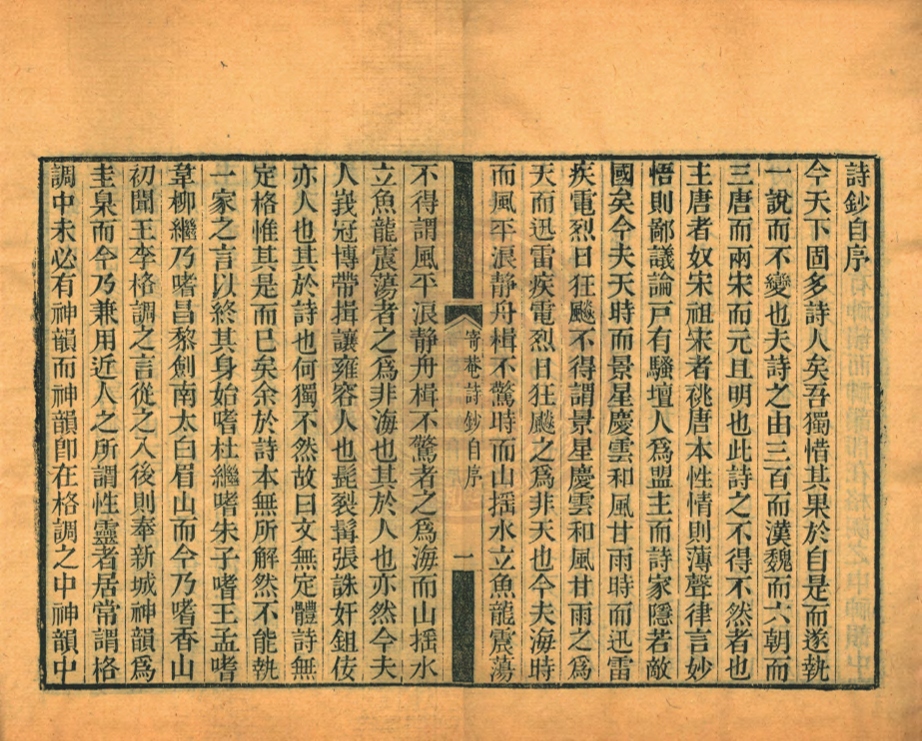 詩鈔自序
今天下固多詩人矣吾獨惜其果於自是而遂執
一說而不變也夫詩之由三百而漢魏而六朝而
三唐而兩宋而元且明也此詩之不得不然者也
主唐者奴宋祖宋者祧唐本性情則薄聲律言妙
悟則鄙議論戸有騷壇人爲盟主而詩家隱若敵
國矣今夫天時而景星慶雲和風甘雨時而迅雷
疾電烈日狂飈不得謂景星慶雲和風甘雨之爲
天而迅雷疾電烈日狂飈之爲非天也今夫海時
而風平浪靜舟楫不驚時而山揺水立魚龍震蕩
寄菴詩鈔自序
一
不得謂風平浪靜舟楫不驚者之爲海而山揺水
立魚龍震蕩者之爲非海也其於人也亦然今夫
人峩冠博帶揖讓雍容人也髭裂髯張誅奸鉏佞
亦人也其於詩也何獨不然故曰文無定體詩無
定格惟其是而已矣余於詩本無所解然不能執
一家之言以終其身始嗜杜繼嗜朱子嗜王孟嗜
韋柳繼乃嗜昌黎劍南太白眉山而今乃嗜香山
初聞王李格調之言從之入後則奉新城神韻爲
圭臬而今乃兼用近人之所謂性靈者居常謂格
調中未必有神韻而神韻卽在格調之中神韻中